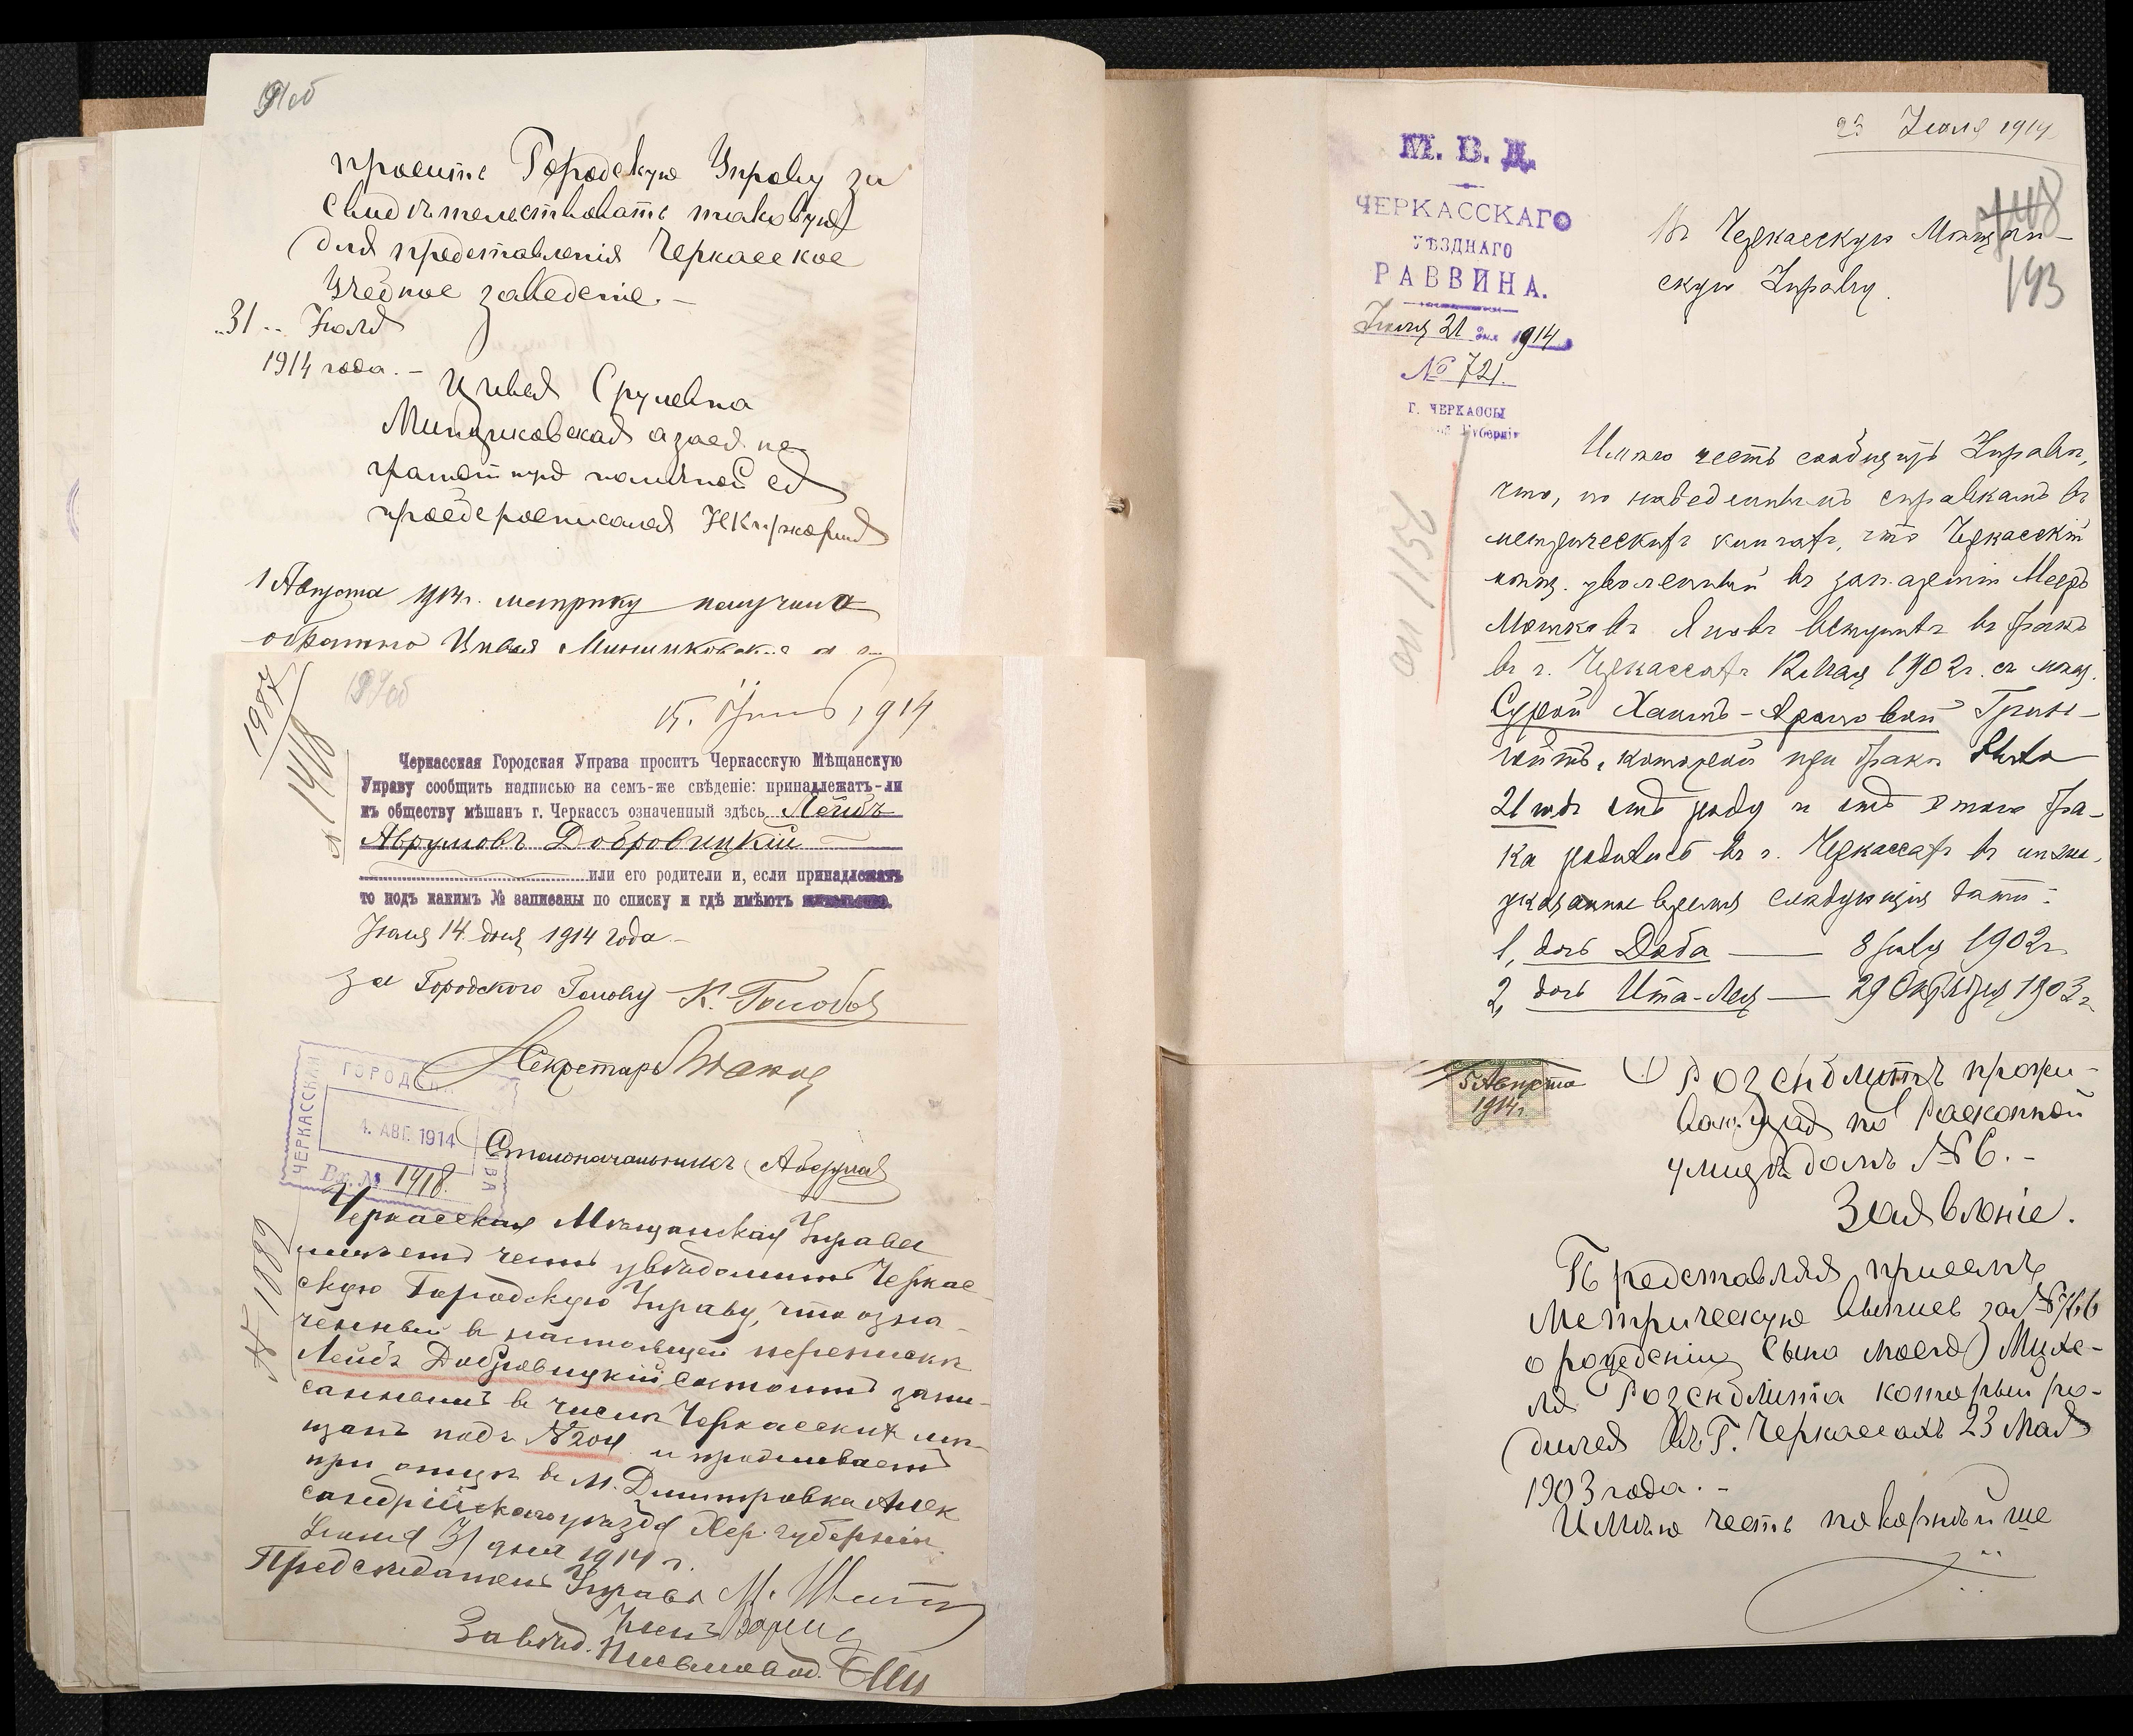 просить Городскую Управу за
свидѣтельствовать таковую
для представленія Черкасское
учебное заведеніе. –
31 – Іюля
1914 года. –
Цивья Срулевна
Миньковская а за ея не
грамотную по личной ея
просьбе росписался
1 Августа 1914 г. метрику получила
обратно Цивья
1987
1418
15. Іюль 1914
Черкасская Городская Управа проситъ Черкасскую Мѣщанскую
Управу сообщить надписью на семъ-же свѣденіе: принадлежатъ-ли
къ обществу мѣщанъ г. Черкассъ означенный здѣсь Лейбъ
Аврумовъ Добровицкій
или его родители и, если принадлежатъ
то подъ какимъ № записаны по списку и гдѣ имѣютъ жительство.
Іюля 14 дня 1914 года –
за Городского Голову К. Голобов
Секретарь
ЧЕРКАССКАЯ ГОРОДСК. УПРАВА
4. АВГ. 1914
Вх. № 1418.
Столоначальникъ
№ 1889
Черкасская Мѣщанская Управа
имѣетъ честь увѣдомить Черкас-
скую Городскую Управу, что озна-
ченный въ настоящей перепискѣ
Лейбъ Добровицкій, состоитъ запи-
саннымъ въ числѣ Черкасскихъ мѣ-
щанъ подъ №204 и проживаетъ
при отцѣ въ м. Дмитровка Алек
сандрійскаго уѣзда Хер. губерніи
Іюля 31 дня 1914 г.
Предсѣдатель Управы М.
Членъ
Завѣд. Письмовод.
23 Іюля 1914
М. В. Д.
ЧЕРКАССКАГО
УѢЗДНАГО
РАВВИНА.
Іюля 21 дня 1914
№ 721.
Г. ЧЕРКАССЫ
Губерніи
Въ Черкасскую Мѣщан-
скую Управу.
193
оп 1156
Имѣю честь сообщить Управѣ,
что, по наведеннымъ справкамъ въ
метрическихъ книгахъ, что Черкасскій
мѣщ. уволенный въ зап. арміи Мееръ
Мошковъ вступилъ въ бракъ
въ г. Черкассахъ 12 мая 1902 г. съ мѣщ.
Сурой Хаимъ-Ароновой Грин-
которой при бракѣ было
21 годъ отъ роду и отъ этого бра-
ка родились въ г. Черкассахъ въ ниже-
указанное время слѣдующія дѣти:
1, дочь Доба — 8 1902 г.
2, дочь Ита-Лея — 29 Октября 1903 г.
5 Августа
1914 г.
Розенблитъ прожи-
вающая по Раскопной
улицѣ домъ № 6. –
Заявленіе.
Представляя присемъ
Метрическую выпись за №166
о рожденіи сына моего Михе-
ля Розенблита который ро-
дился въ Г. Черкассахъ 23 Мая
1903 года. –
Имѣю честь покорнѣйше